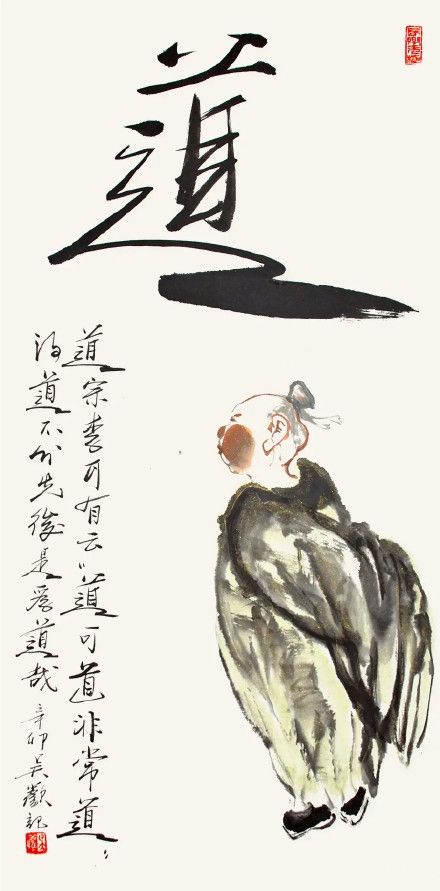 道
道宗李耳有云“道可道非常道”
得道不分先後是爲道哉
辛卯吴歡記